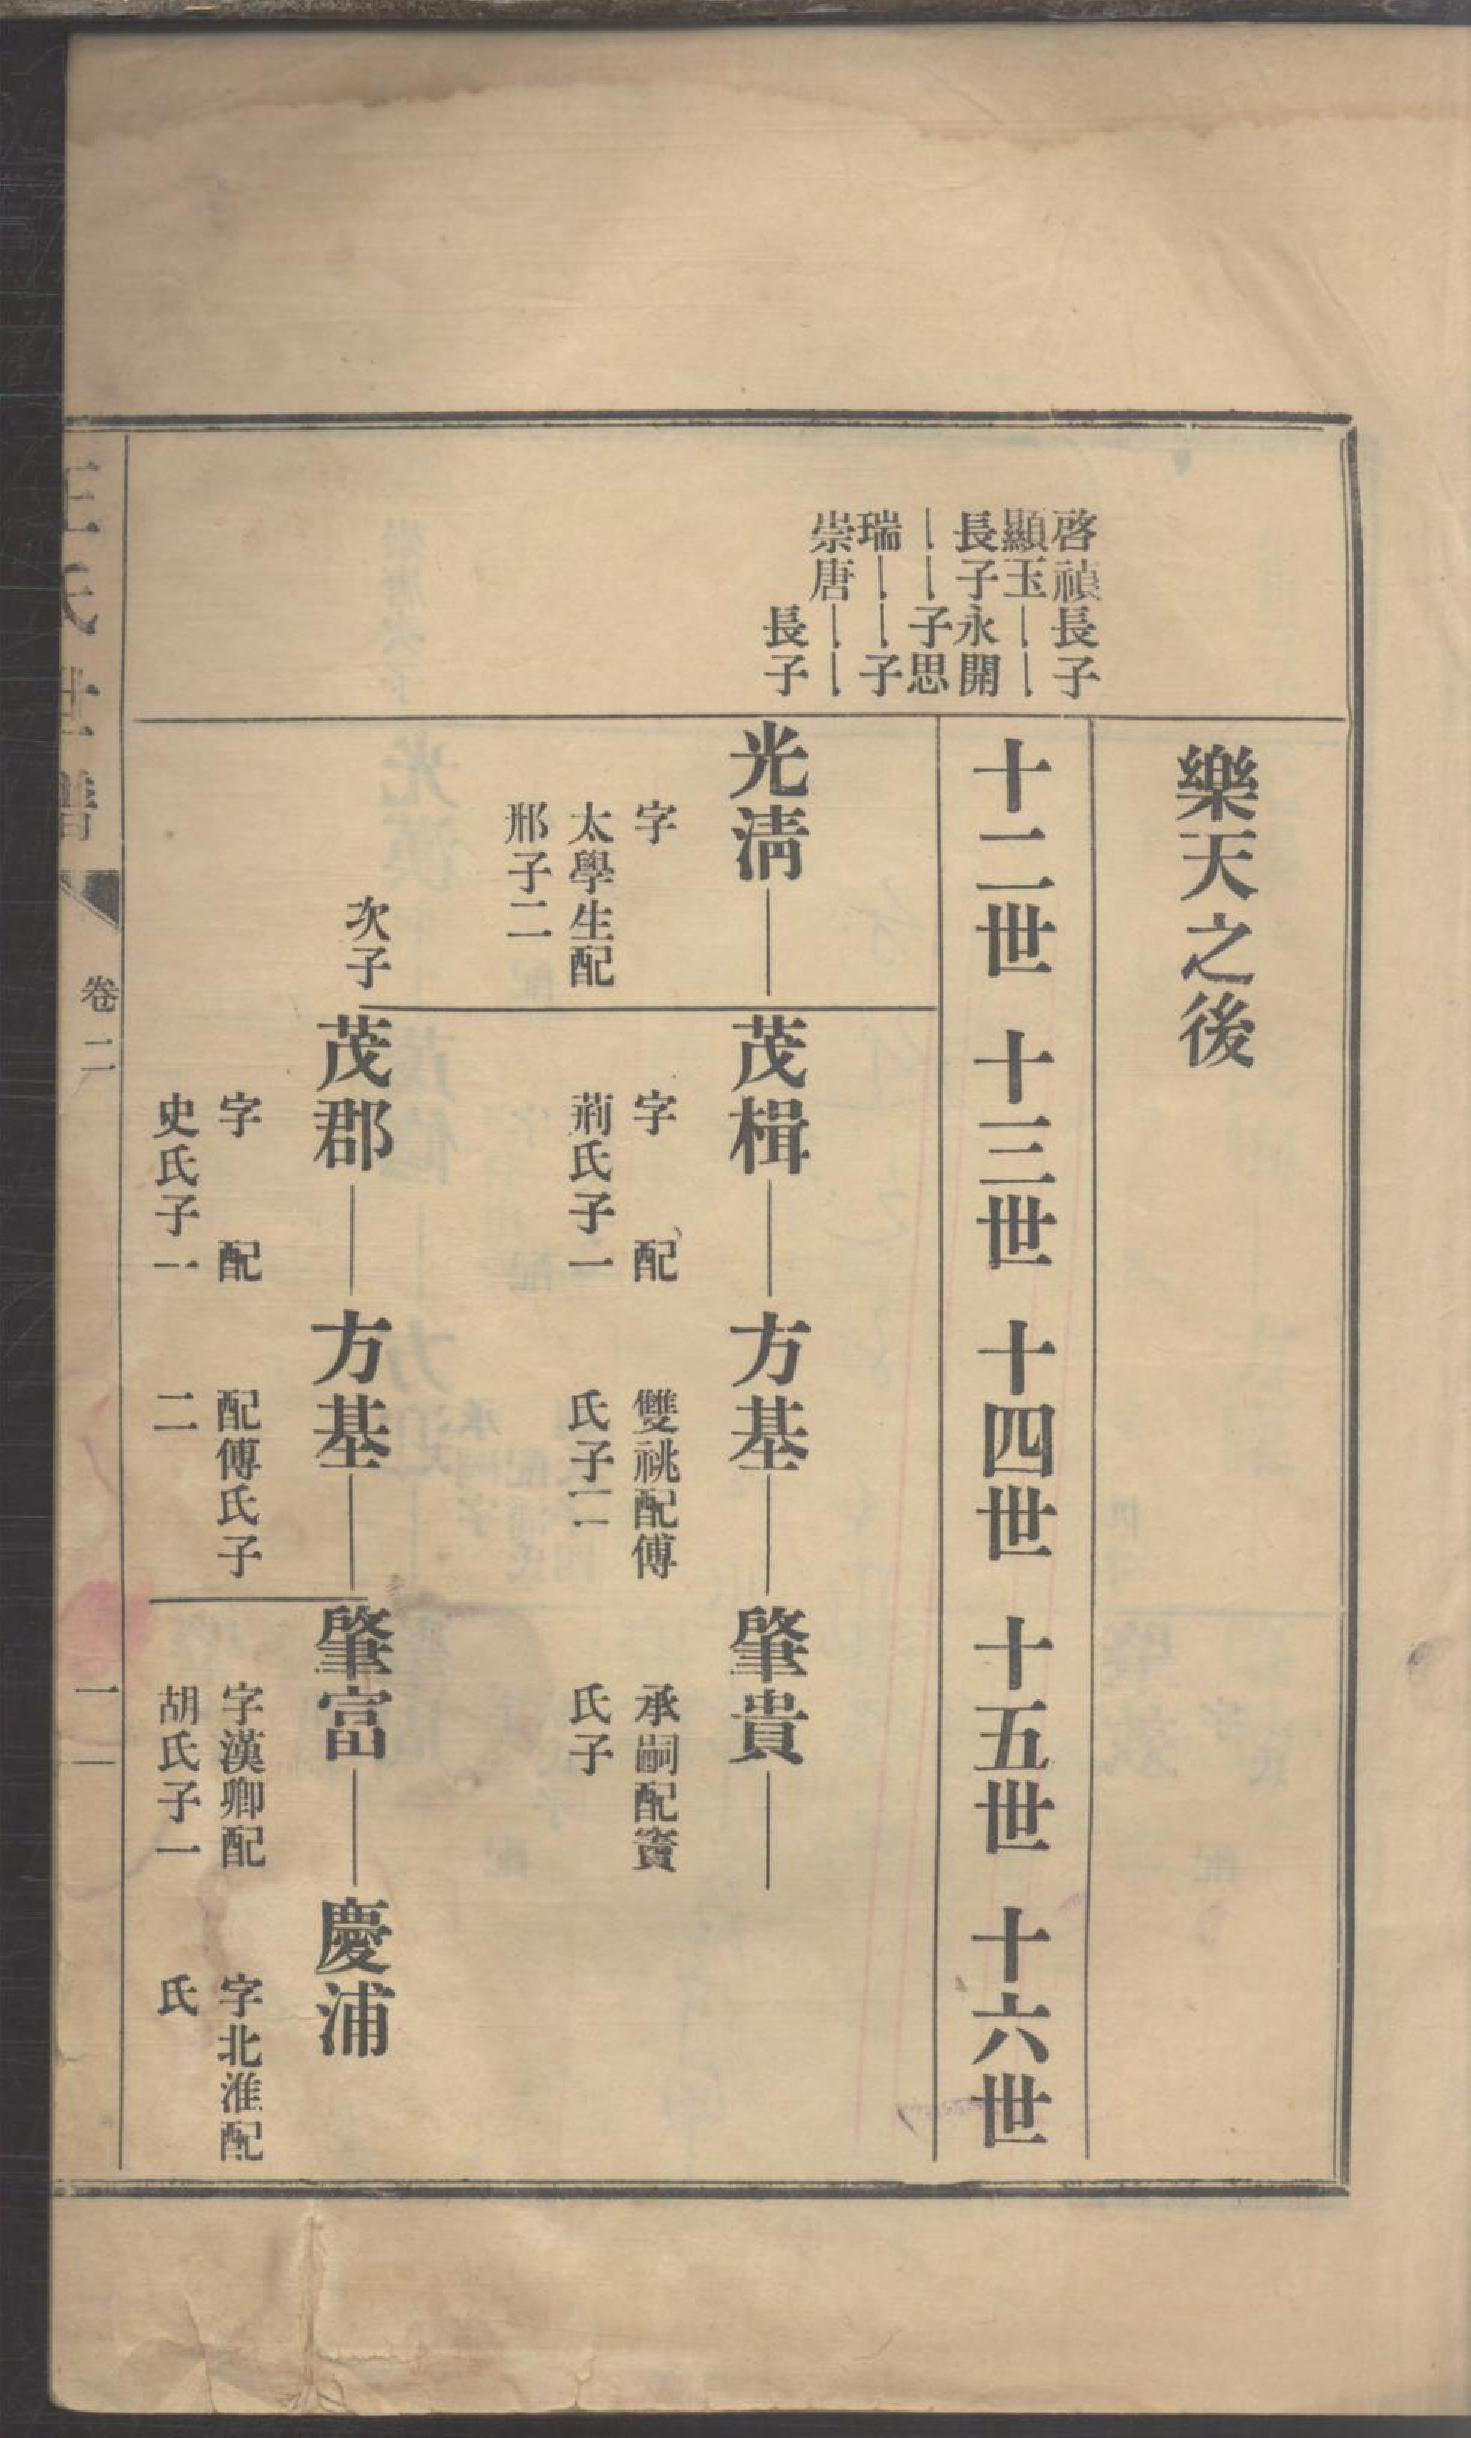 樂天之後
啓禎長子
顯玉——
長子永開
——子思
瑞——子
崇唐——
長子
十二世 十三世 十四世 十五世 十六世
光清—茂楫—方基—肇貴—
字
太學生配
邢子二
字 配
荊氏子一
雙祧配傅
氏子二
承嗣配竇
氏子
次子
茂郡—方基—肇富—慶浦
字 配
史氏子一
配傅氏子
二
字漢卿配
胡氏子一
字北淮配
氏
王氏世譜 卷二 一一